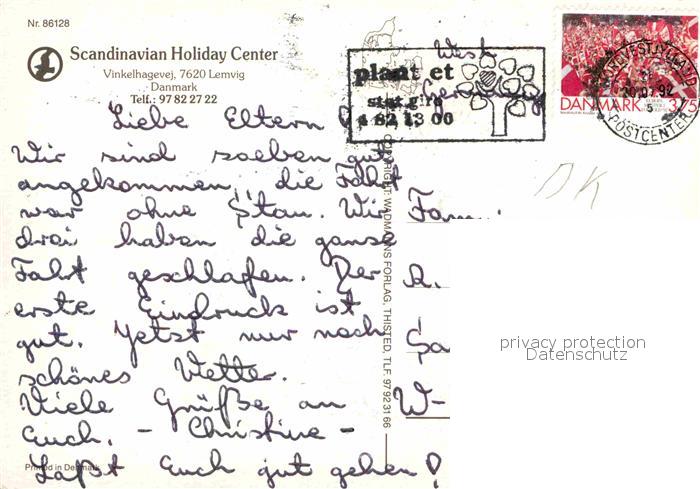 Nr. 86128
Scandinavian Holiday Center
Vinkelhagevej, 7620 Lemvig
Danmark
Telf.: 97 82 27 22
West
Germany
plant et
stat.giro
4 82 13 00
NORDVESTJYLLAND
20.07.92
5
POSTCENTER
DANMARK 3,75
DK
Liebe Eltern!
Wir sind soeben gut
angekommen, die Fahrt
war ohne Stau. Wir
drei haben die ganse
Fahrt geschlafen. Der
erste Eindruck ist
gut. Jetzt nur noch
schönes Wetter.
Viele Grüße an
Euch. - Christine -
Laßt Euch gut gehen!
Fam.
R.
Sa
W-
COPYRIGHT: WADMANNS FORLAG, THISTED, TLF. 97 92 31 66
Printed in Denmark
privacy protection
Datenschutz